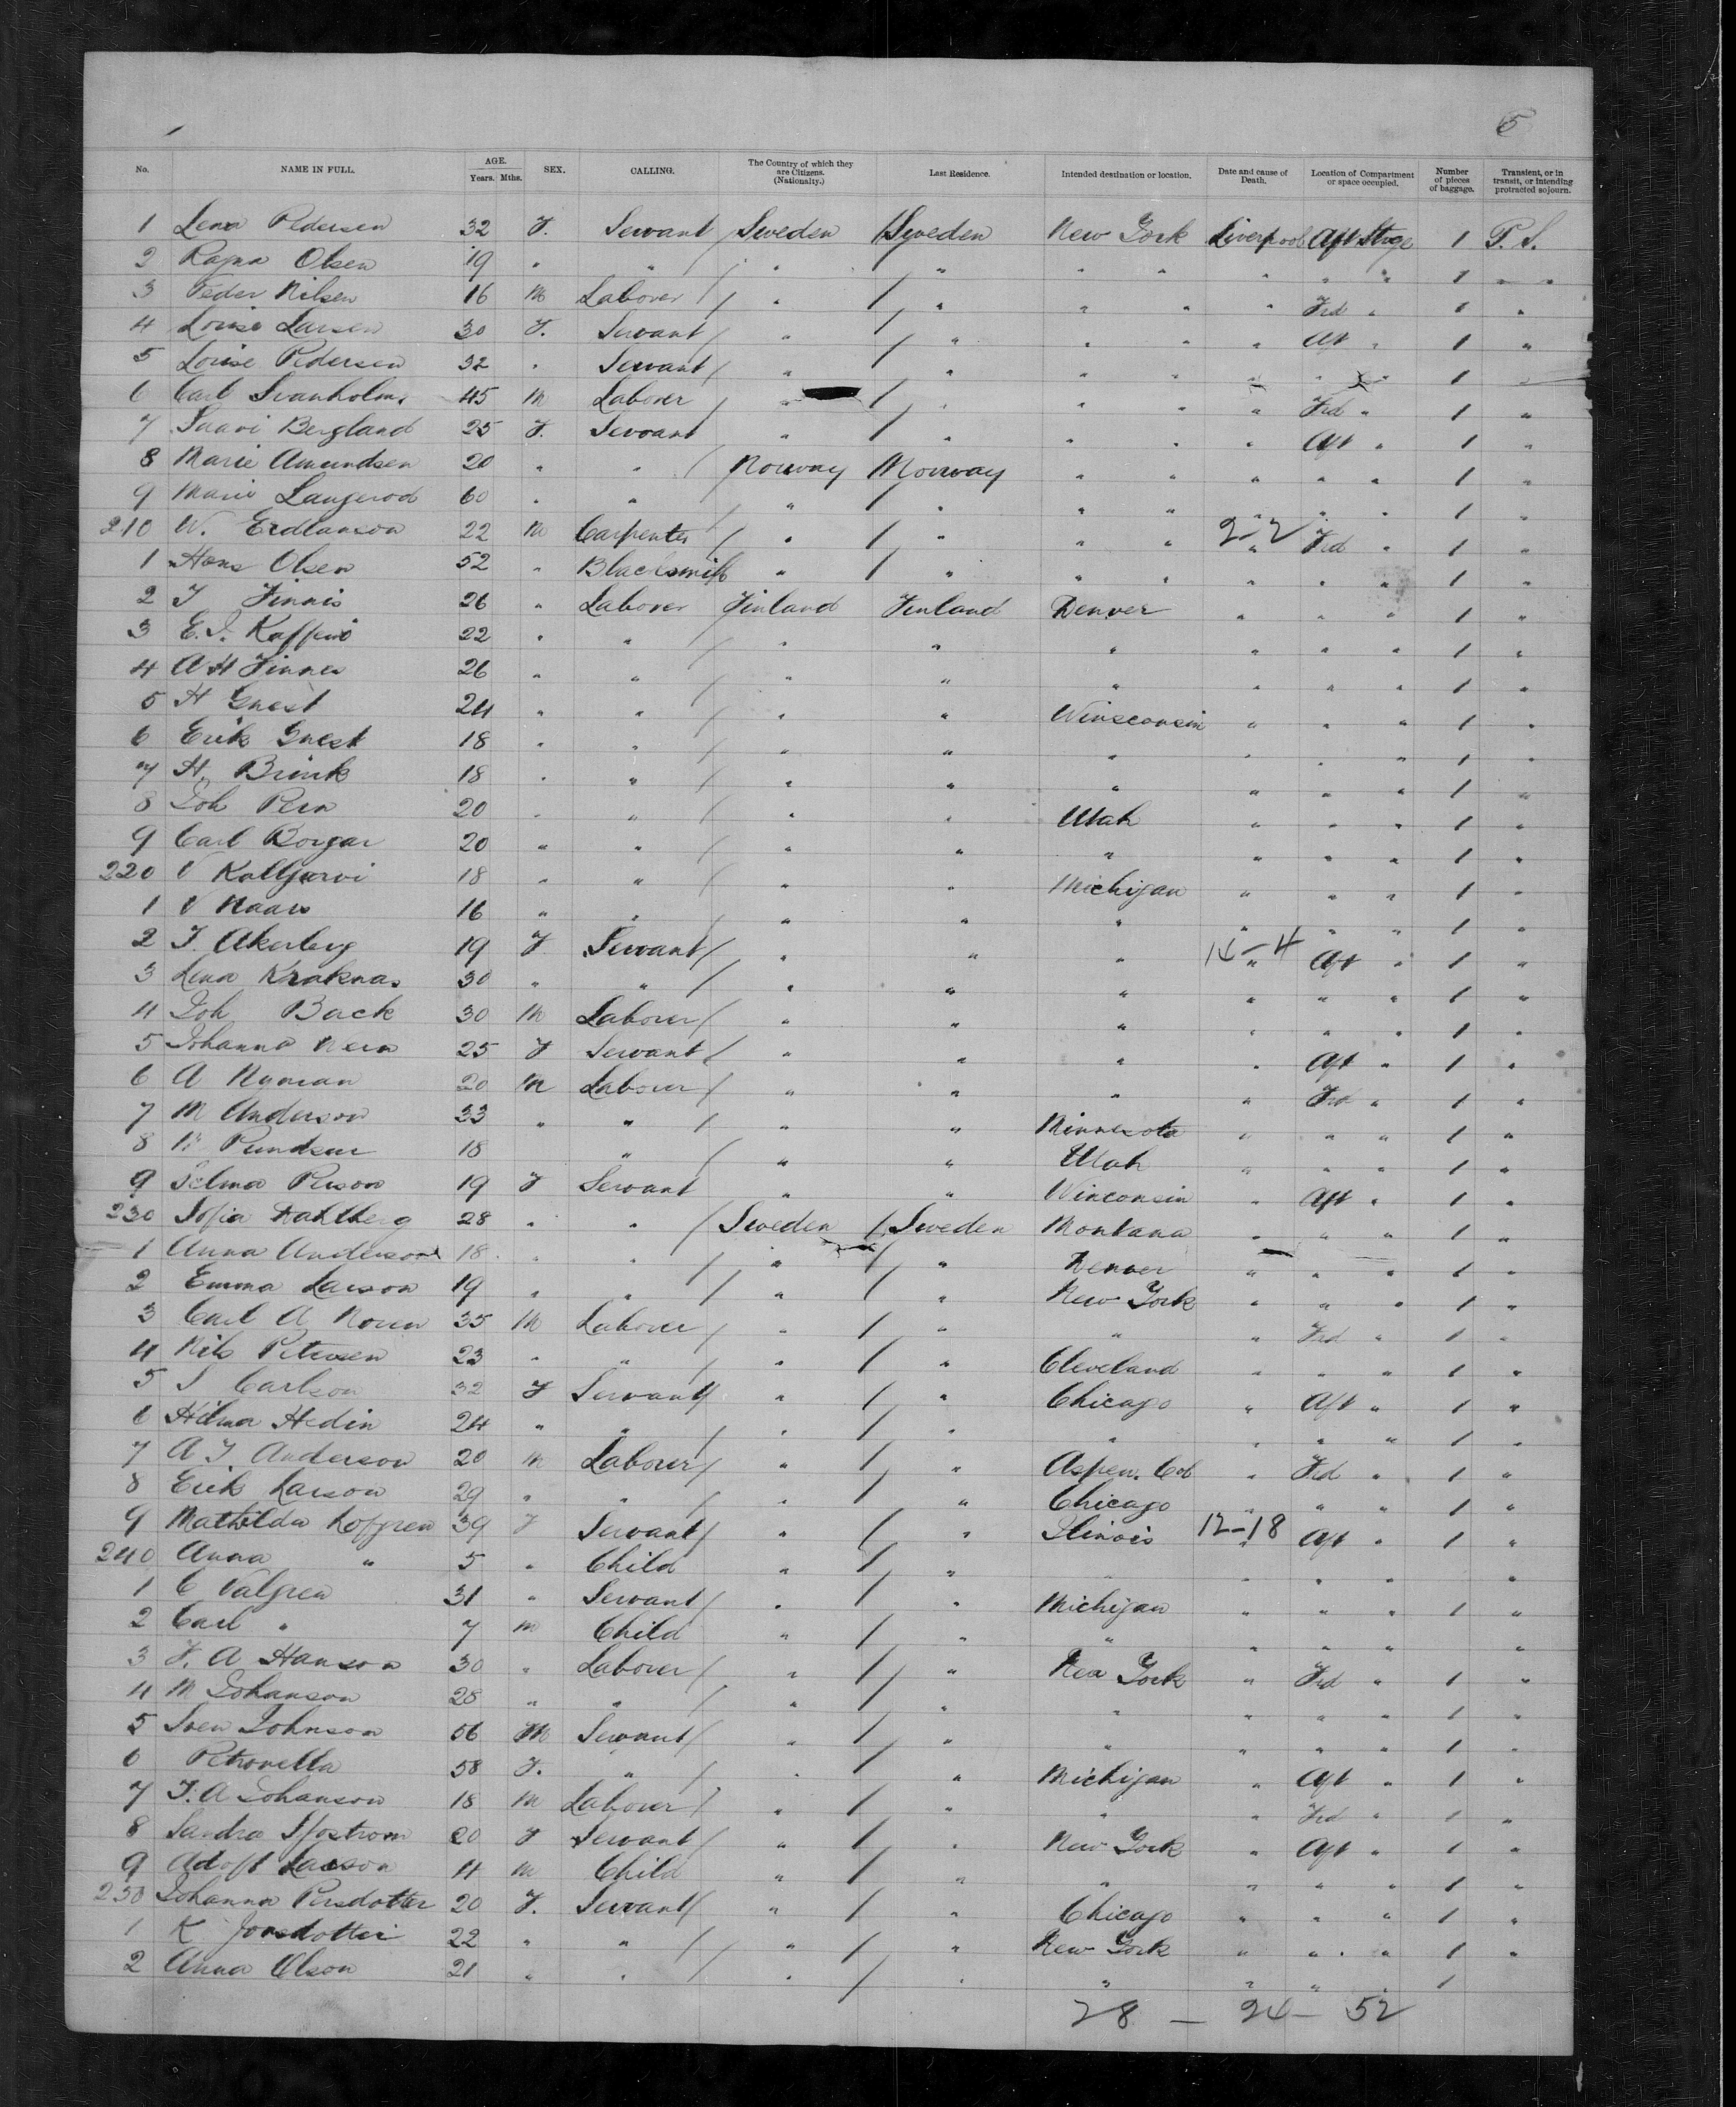 5
No. NAME IN FULL. AGE. Years. Mths. SEX. CALLING. The Country of which they are Citizens. (Nationality.) Last Residence. Intended destination or location. Date and cause of Death. Location of Compartment or space occupied. Number of pieces of baggage. Transient, or in transit, or intending protracted sojourn.
1 Lena Pedersen 32 F. Servant Sweden Sweden New York Liverpool Aft Stge 1 P. S.
2 Ragna Olsen 19 " " " " " " " " " 1 " "
3 Peder Nilsen 16 M Laborer " " " " " Frd " 1 "
4 Louise Larsen 30 F. Servant " " " " " Aft " 1 "
5 Louise Pedersen 32 " Servant " " " " " " " 1 "
6 Carl Svanholm 45 M Laborer " " " " " Frd " 1 "
7 Saavi Bergland 25 F. Servant " " " " " Aft " 1 "
8 Marie Amundsen 20 " " Norway Norway " " " " " 1 "
9 Marie Langerod 60 " " " " " " " " " 1 "
210 W. Erdlanson 22 M Carpenter " " " " 2-2 " Frd " 1 "
1 Hans Olsen 52 " Blacksmith " " " " " " " 1 "
2 J Finnis 26 " Laborer Finland Finland Denver " " " 1 "
3 E. J. 22 " " " " " " " " 1 "
4 A H Finnes 26 " " " " " " " " 1 "
5 H Gnest 24 " " " " Winsconsin " " " 1 "
6 Erik Gnest 18 " " " " " " " " 1 "
7 H. Brink 18 " " " " " " " " 1 "
8 Joh 20 " " " " Utah " " " 1 "
9 Carl Borgar 20 " " " " " " " " 1 "
220 V Kalljarvi 18 " " " " Michigan " " " 1 "
1 V 16 " " " " " " " " 1 "
2 J. Akerberg 19 F Servant " " " 10-4 " Aft " 1 "
3 Lena Kraknas 30 " " " " " " " " 1 "
4 Joh Back 30 M Laborer " " " " " " 1 "
5 Johanna 25 F Servant " " " " Aft " 1 "
6 A Nyman 20 M Laborer " " " " Frd " 1 "
7 M Anderson 33 " " " " Minnesota " " " 1 "
8 18 " " " Utah " " " 1 "
9 Selma Person 19 F Servant " " Winconsin " Aft " 1 "
230 Sofia Dahlberg 28 " " Sweden Sweden Montana " " " 1 "
1 Anna Anderson 18 " " " " Denver " " " 1 "
2 Emma Larson 19 " " " " New York " " " 1 "
3 Carl A Noren 35 M Laborer " " " " Frd " 1 "
4 Nils Petersen 23 " " " " Cleveland " " " 1 "
5 J Carlson 32 F Servant " " Chicago " Aft " 1 "
6 Hilma Hedin 24 " " " " " " " " 1 "
7 A J. Anderson 20 M Laborer " " Aspen. Col " Frd " 1 "
8 Erik Larson 29 " " " " Chicago " " " 1 "
9 Mathilda Lofgren 39 F Servant " " Ilinois 12-18 " Aft " 1 "
240 Anna " 5 " Child " " " " " " "
1 C Valgren 31 " Servant " " Michigan " " " 1 "
2 Carl " 7 M Child " " " " " " "
3 F. A Hanson 30 " Laborer " " New York " Frd " 1 "
4 M Johanson 28 " " " " " " " " 1 "
5 Sven Johnson 56 M Servant " " " " " " 1 "
6 Petronella 58 F. " " " Michigan " Aft " 1 "
7 J. A Johanson 18 M Laborer " " " " Frd " 1 "
8 Sandra 20 F Servant " " New York " Aft " 1 "
9 Adolf Larson 4 M Child " " " " " " 1 "
250 Johanna Persdotter 20 F. Servant " " Chicago " " " 1 "
1 K Jonsdotter 22 " " " " New York " " " 1 "
2 Anna Olson 21 " " " " " " " " 1
28 - 24 - 52